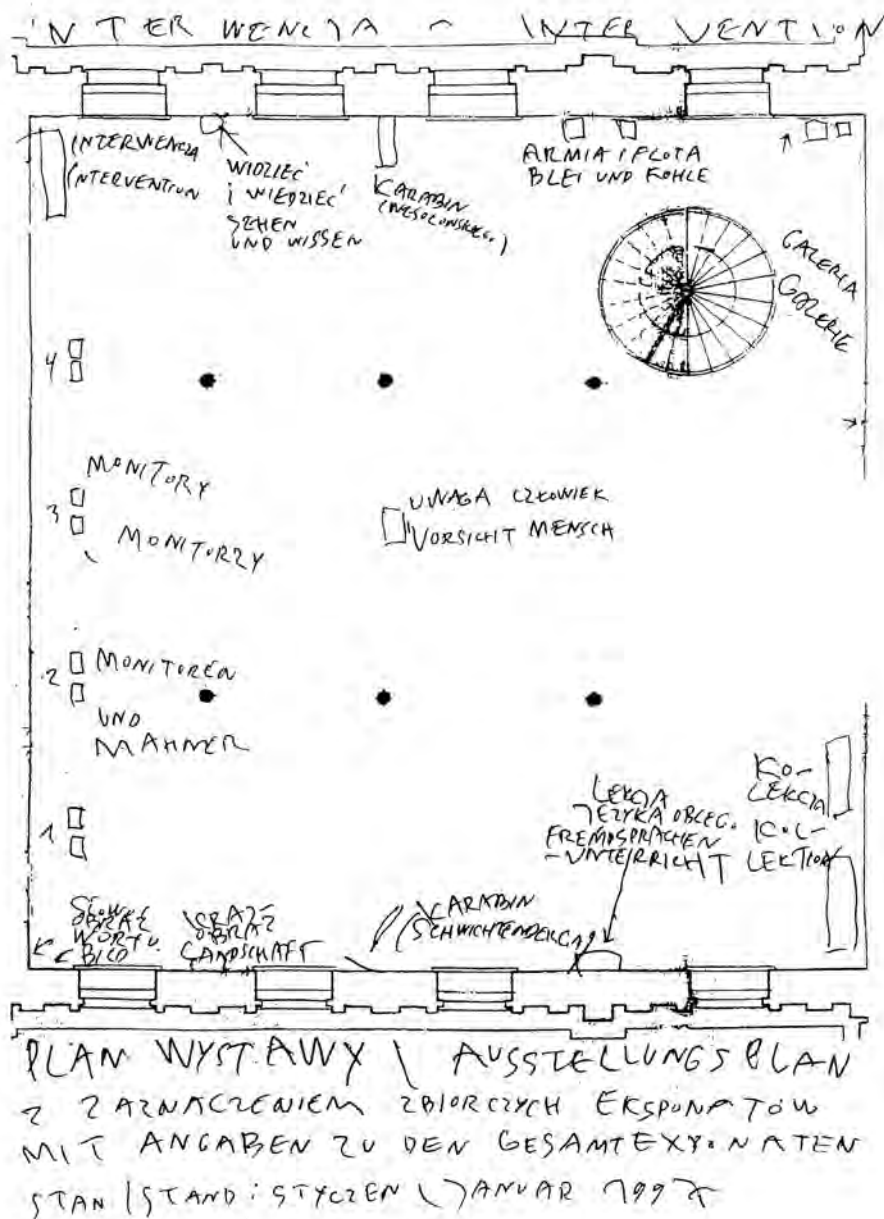 INTERWENCJA - INTERVENTION
INTERWENCJA
INTERVENTION
WIDZIEĆ
I WIEDZIEĆ
SEHEN
UND WISSEN
KARABIN
ARMIA I FLOTA
BLEI UND KOHLE
GALERIA
GALERIE
4
MONITORY
3
MONITORZY
UWAGA CZŁOWIEK
VORSICHT MENSCH
2
MONITOREN
UND
MAHNER
1
KO-
LEKCJA
KOL-
LEKTION
LEKCJA
JĘZYKA OBCEGO.
FREMDSPRACHEN
-UNTERRICHT
WORT U.
BILD
LANDSCHAFT
KARABIN
PLAN WYSTAWY \ AUSSTELLUNGSPLAN
Z ZAZNACZENIEM ZBIORCZYCH EKSPONATÓW
MIT ANGABEN ZU DEN GESAMTEXPONATEN
STAN / STAND: STYCZEŃ \ JANUAR 1997